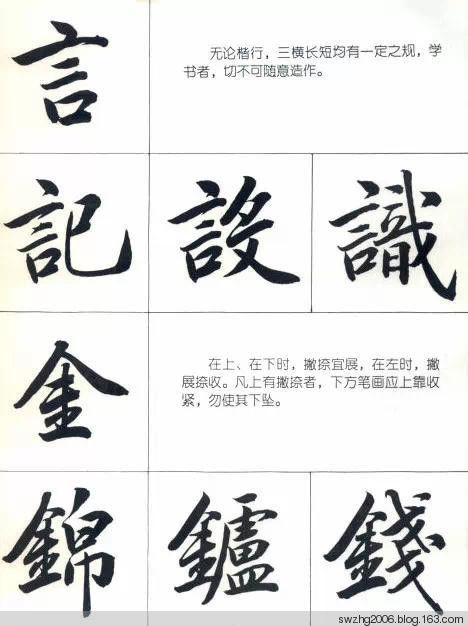 言
无论楷行，三横长短均有一定之规，学
书者，切不可随意造作。
記 設 識
金
在上、在下时，撇捺宜展，在左时，撇
展捺收。凡上有撇捺者，下方笔画应上靠收
紧，勿使其下坠。
錦 鑪 錢
swzhg2006.blog.163.com